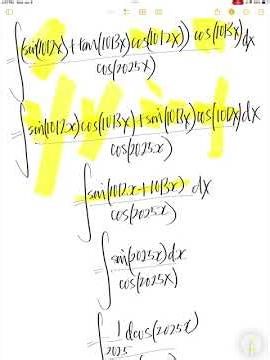 ∫(sin(1012x)+tan(1013x)cos(1012x)) cos(1013x) dx / cos(2025x)
=∫ sin(1012x)cos(1013x)+sin(1013x)cos(1012x) dx / cos(2025x)
∫ sin(1012x+1013x) / cos(2025x) dx
=∫ sin(2025x)dx / cos(2025x)
=∫ 1/2025 dcos(2025x)